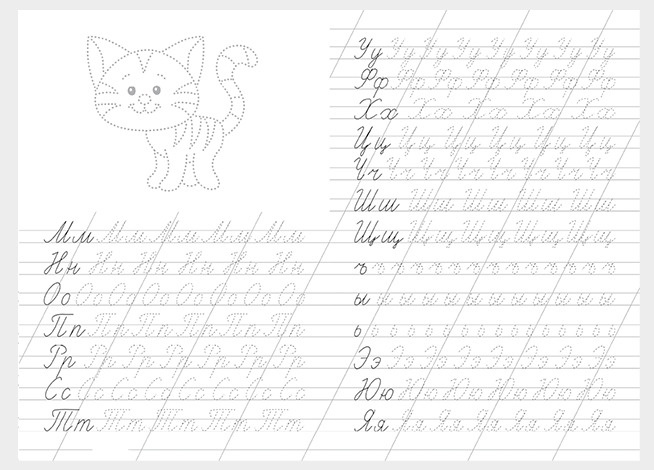 Мм Мм Мм Мм Мм
Нн Нн Нн Нн Нн Нн
Оо Оо Оо Оо Оо Оо Оо Оо
Пп Пп Пп Пп Пп Пп
Рр Рр Рр Рр Рр Рр Рр
Сс Сс Сс Сс Сс Сс Сс Сс
Тт Тт Тт Тт Тт
Уу Уу Уу Уу Уу Уу Уу Уу
Фф Фф Фф Фф Фф Фф Фф
Хх Хх Хх Хх Хх
Цц Цц Цц Цц Цц Цц Цц
Чч Чч Чч Чч Чч Чч Чч Чч
Шш Шш Шш Шш Шш
Щщ Щщ Щщ Щщ Щщ
ъ ъ ъ ъ ъ ъ ъ ъ ъ ъ ъ ъ ъ ъ
ы ы ы ы ы ы ы ы ы ы ы ы ы
ь ь ь ь ь ь ь ь ь ь ь ь ь ь ь
Ээ Ээ Ээ Ээ Ээ Ээ Ээ Ээ
Юю Юю Юю Юю Юю Юю
Яя Яя Яя Яя Яя Яя Яя